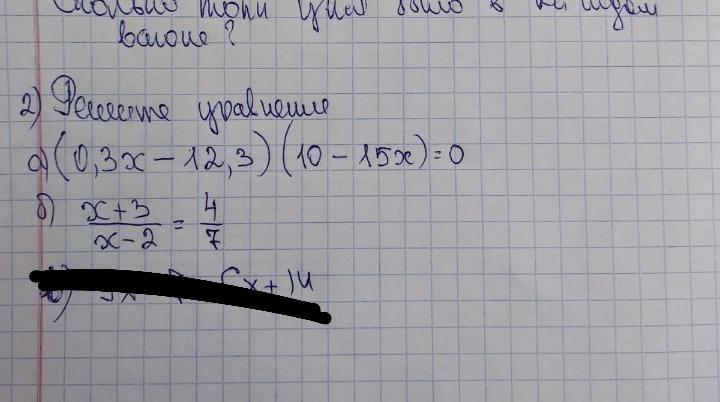 Сколько тонн угля было в каждом
вагоне?
2) Решите уравнение
а) (0,3x – 12,3)(10 – 15x) = 0
б) x+3 / x–2 = 4/7
x + 14